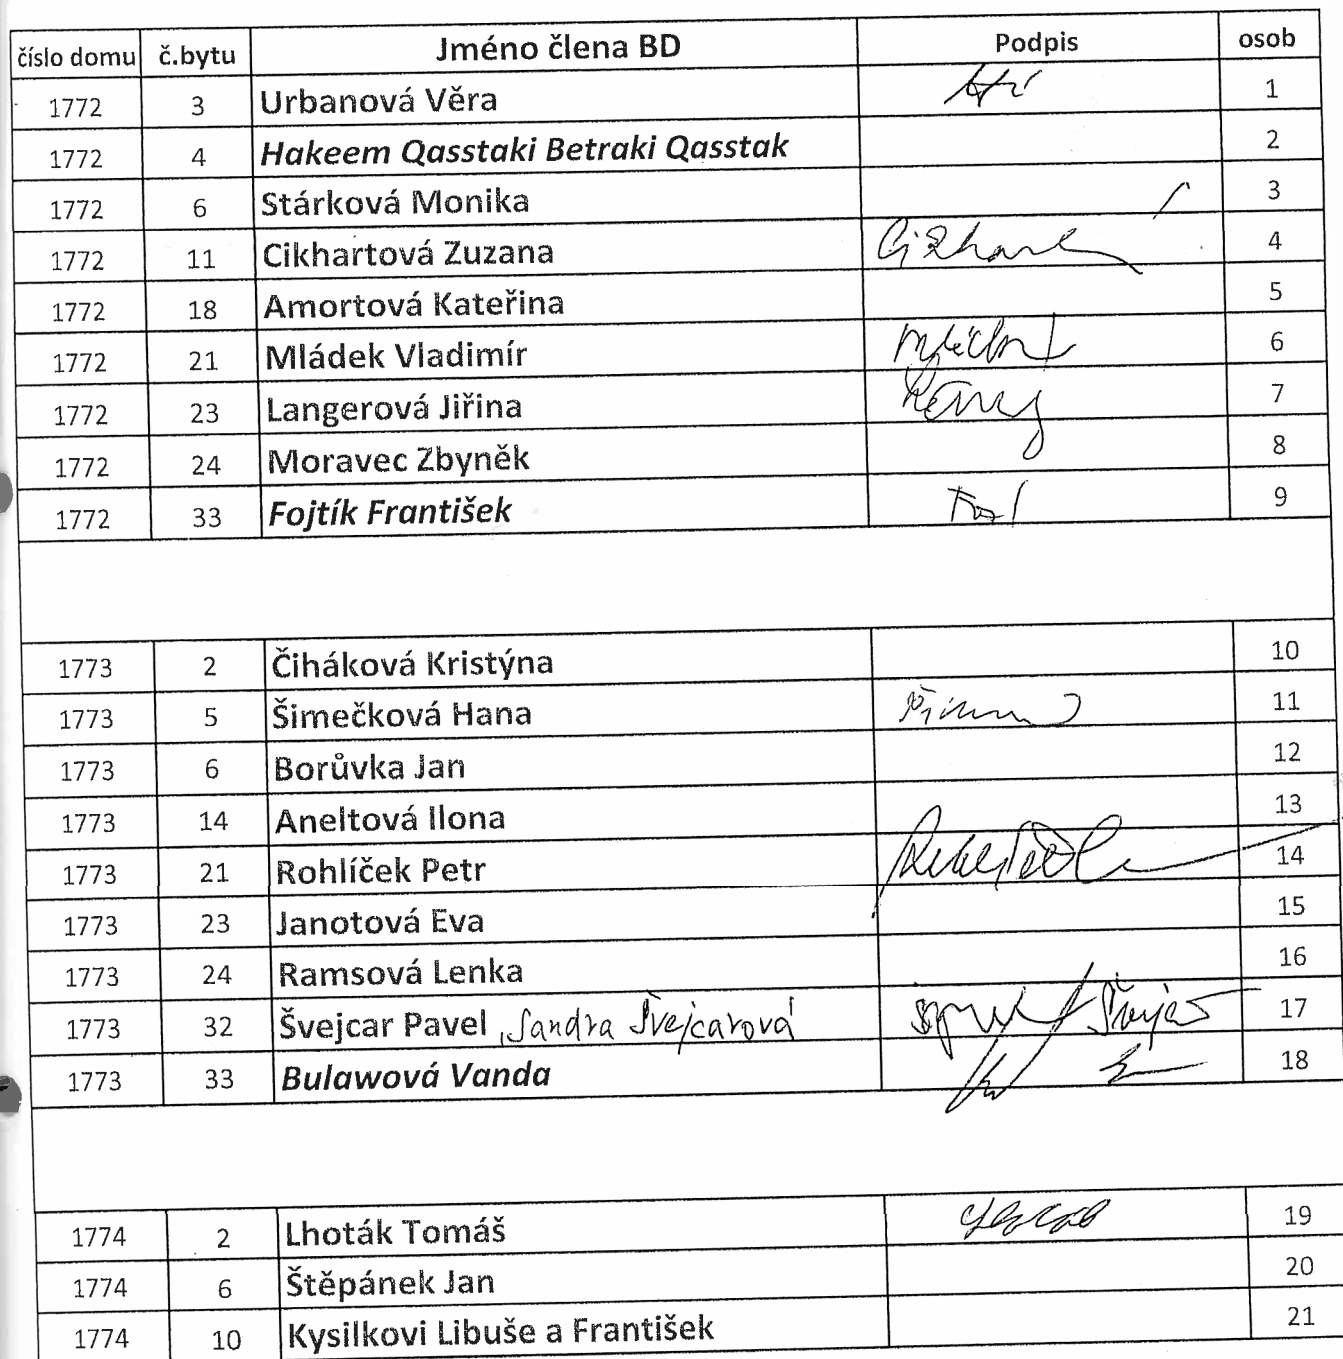 číslo domu č.bytu Jméno člena BD Podpis osob
1772 3 Urbanová Věra 1
1772 4 Hakeem Qasstaki Betraki Qasstak 2
1772 6 Stárková Monika 3
1772 11 Cikhartová Zuzana 4
1772 18 Amortová Kateřina 5
1772 21 Mládek Vladimír 6
1772 23 Langerová Jiřina 7
1772 24 Moravec Zbyněk 8
1772 33 Fojtík František 9
1773 2 Čiháková Kristýna 10
1773 5 Šimečková Hana 11
1773 6 Borůvka Jan 12
1773 14 Aneltová Ilona 13
1773 21 Rohlíček Petr 14
1773 23 Janotová Eva 15
1773 24 Ramsová Lenka 16
1773 32 Švejcar Pavel , Sandra Švejcarová 17
1773 33 Bulawová Vanda 18
1774 2 Lhoták Tomáš 19
1774 6 Štěpánek Jan 20
1774 10 Kysilkovi Libuše a František 21